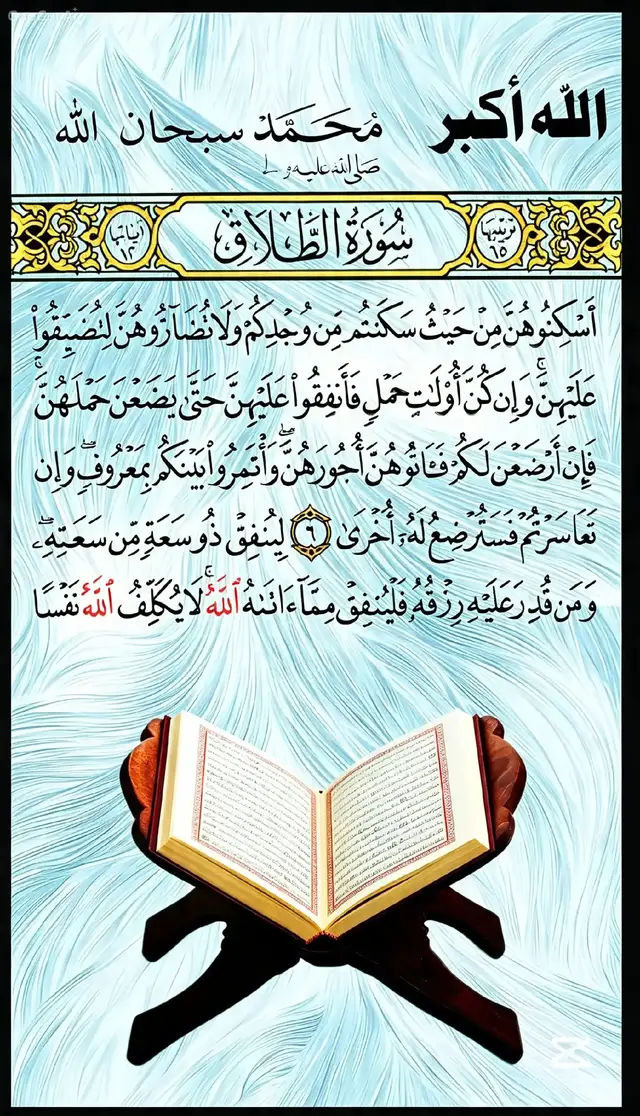 الله أكبر
مُحَمَّدْ سبحان الله
صَلى الله عليه و
ترتيبها ٦٥ سُورَةُ الطَّلَاقِ آياتها ١٢
أَسْكِنُوهُنَّ مِنْ حَيْثُ سَكَنتُم مِّن وُجْدِكُمْ وَلَا تُضَآرُّوهُنَّ لِتُضَيِّقُوا۟
عَلَيْهِنَّ ۚ وَإِن كُنَّ أُو۟لَٰتِ حَمْلٍ فَأَنفِقُوا۟ عَلَيْهِنَّ حَتَّىٰ يَضَعْنَ حَمْلَهُنَّ ۚ
فَإِنْ أَرْضَعْنَ لَكُمْ فَـَٔاتُوهُنَّ أُجُورَهُنَّ ۖ وَأْتَمِرُوا۟ بَيْنَكُم بِمَعْرُوفٍ ۖ وَإِن
تَعَاسَرْتُمْ فَسَتُرْضِعُ لَهُۥٓ أُخْرَىٰ ٦ لِيُنفِقْ ذُو سَعَةٍ مِّن سَعَتِهِۦ ۖ
وَمَن قُدِرَ عَلَيْهِ رِزْقُهُۥ فَلْيُنفِقْ مِمَّآ ءَاتَىٰهُ ٱللَّهُ ۚ لَا يُكَلِّفُ ٱللَّهُ نَفْسًا